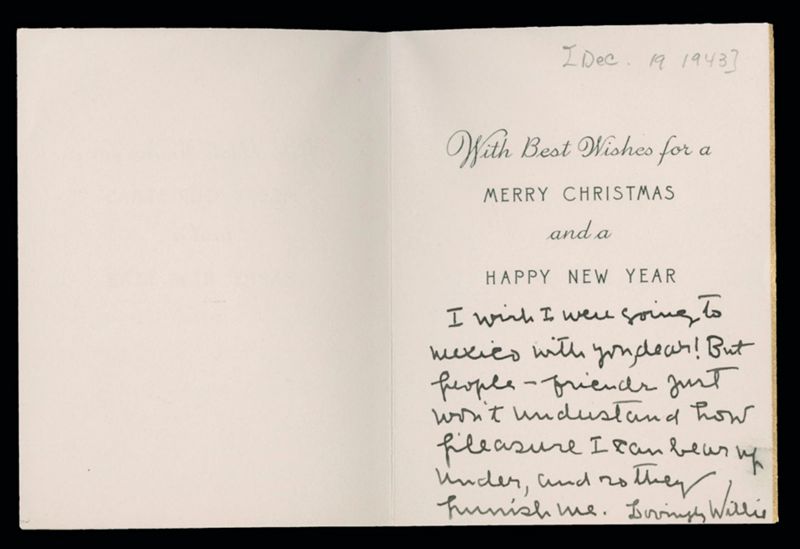 [Dec. 19 1943]
With Best Wishes for a
MERRY CHRISTMAS
and a
HAPPY NEW YEAR
I wish I were going to
mexico with you, dear! But
people - friends just
won't understand how
pleasure I can bear up
under, and so they
punish me. Lovingly Willie